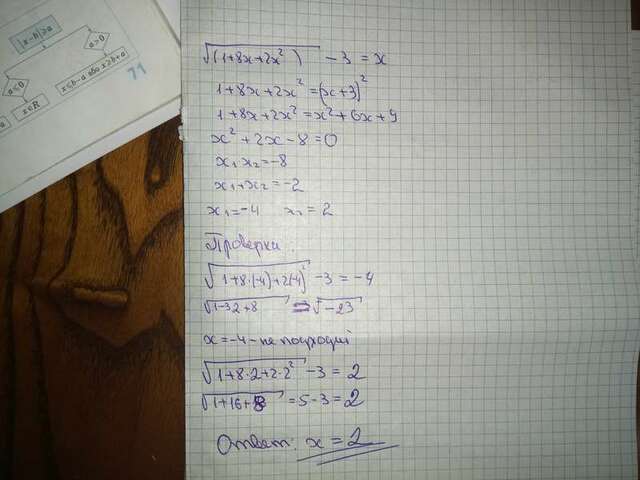 √(1+8x+2x²) - 3 = x
1+8x+2x² = (x+3)²
1+8x+2x² = x²+6x+9
x²+2x-8=0
x₁x₂=-8
x₁+x₂=-2
x₁=-4 x₂=2
Проверка:
√1+8(-4)+2(4)² - 3 = -4
√1-32+8 = √-23
x=-4 - не
√1+8·2+2·2² - 3 = 2
√1+16+8 = 5-3=2
Ответ: x=2
|x-b|>a
a<0
a>0
x∈R
x<b-a або x>b+a
71